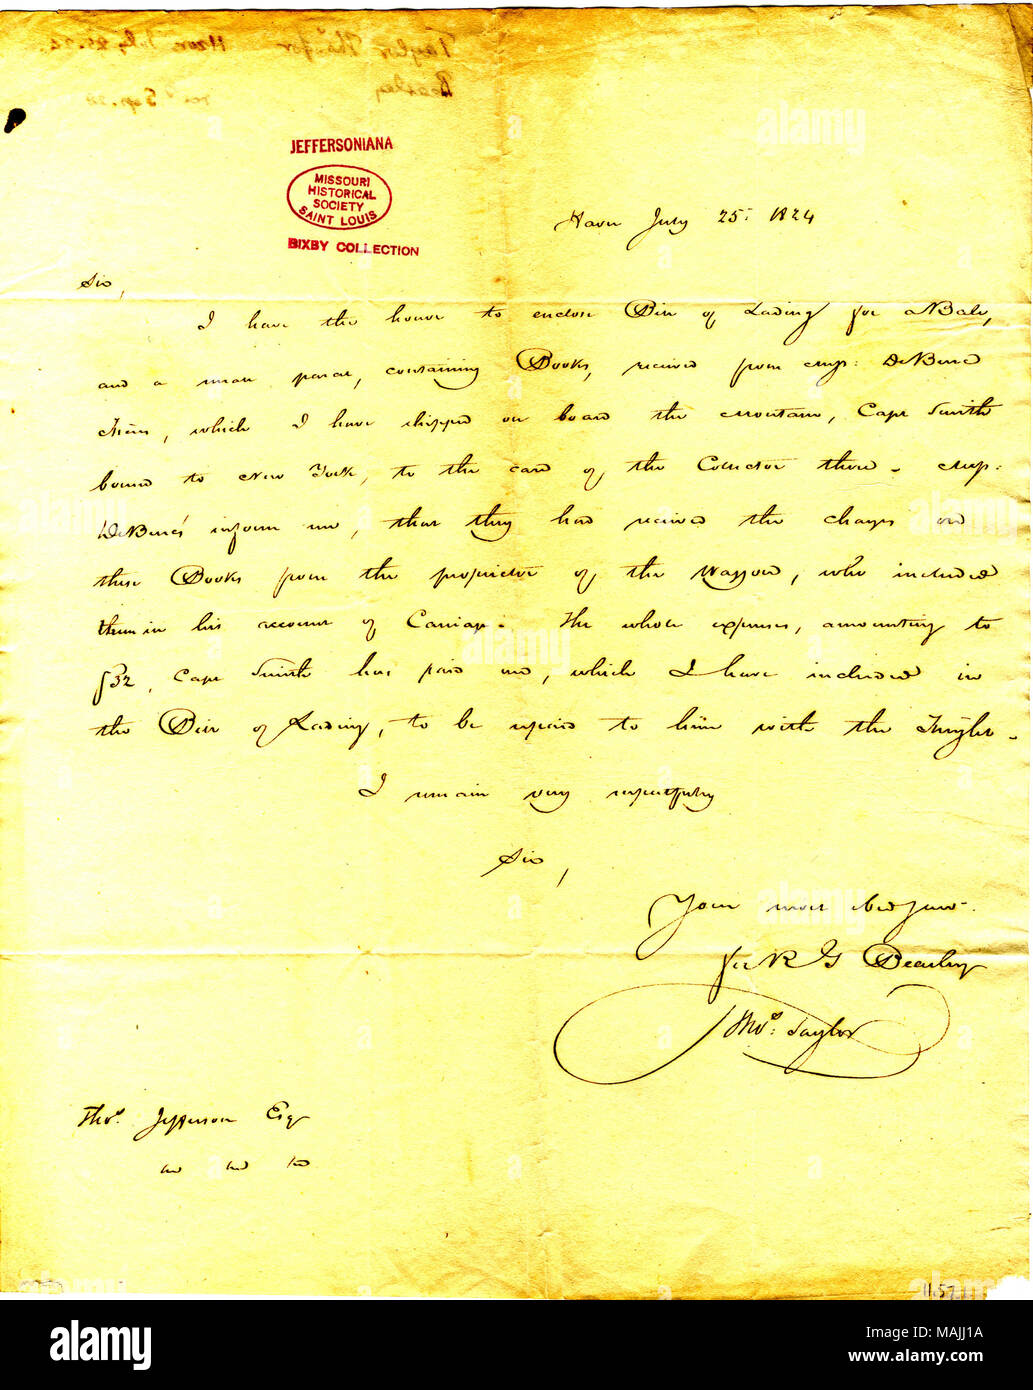 JEFFERSONIANA
MISSOURI
HISTORICAL
SOCIETY
SAINT LOUIS
BIXBY COLLECTION
Havre July 25: 1824
Sir,
I have the honor to enclose Bill of Lading for a Bale,
and a small parcel, containing Books, received from Mssrs: DeBure
Freres, which I have shipped on board the Mountain, Capt Smith
bound to New York, to the care of the Collector there. Mssrs:
DeBures inform me, that they had received the charges on
these Books from the proprietor of the Waggon, who included
them in his account of Carriage. The whole expenses, amounting to
f32, Capt Smith has paid me, which I have included in
the Bill of Lading, to be repaid to him with the freight.
I remain very respectfully
Sir,
Your most obed serv.
for R G Beasley
Thos. Taylor
Thos. Jefferson Esq
1157
alamy
Image ID: MAJJ1A
www.alamy.com